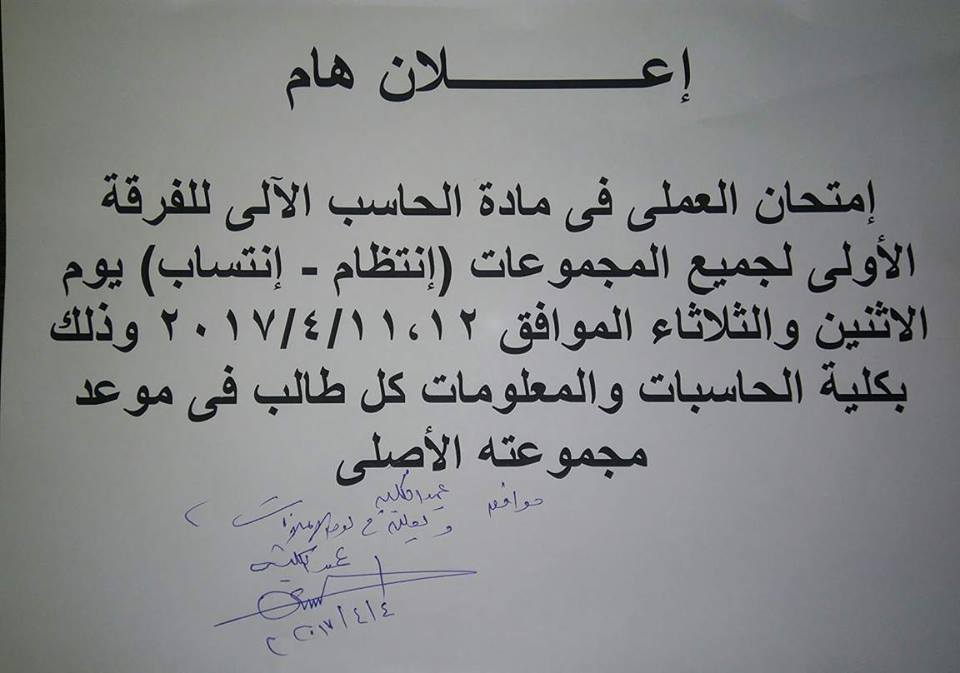 إعـــــــــلان هام
إمتحان العملى فى مادة الحاسب الآلى للفرقة
الأولى لجميع المجموعات (إنتظام - إنتساب) يوم
الاثنين والثلاثاء الموافق ١١،١٢/٤/٢٠١٧ وذلك
بكلية الحاسبات والمعلومات كل طالب فى موعد
مجموعته الأصلى
عميد الكلية
عميد الكلية
٢٠١٧/٤/٤